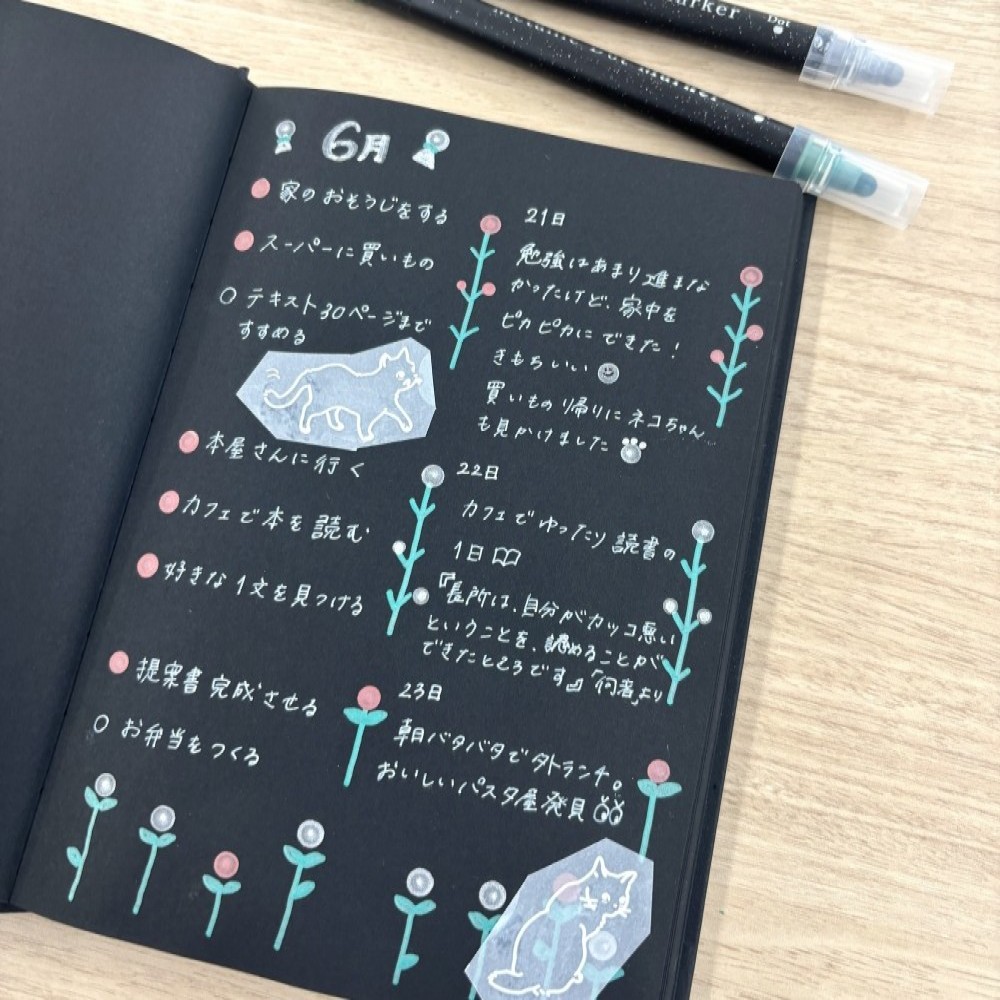 Marker
Dot
Metallic Dot Marker
6月
家のおそうじをする
スーパーに買いもの
テキスト30ページまで
すすめる
本屋さんに行く
カフェで本を読む
好きな1文を見つける
提案書完成させる
お弁当をつくる
21日
勉強はあまり進まな
かったけど、家中を
ピカピカにできた!
きもちいい
買いもの帰りにネコちゃん
も見かけました
22日
カフェでゆったり読書の
1日
『「長所は、自分がカッコ悪い
ということを、認めることが
できたところです』「何者」より
23日
朝バタバタで外ランチ。
おいしいパスタ屋発見